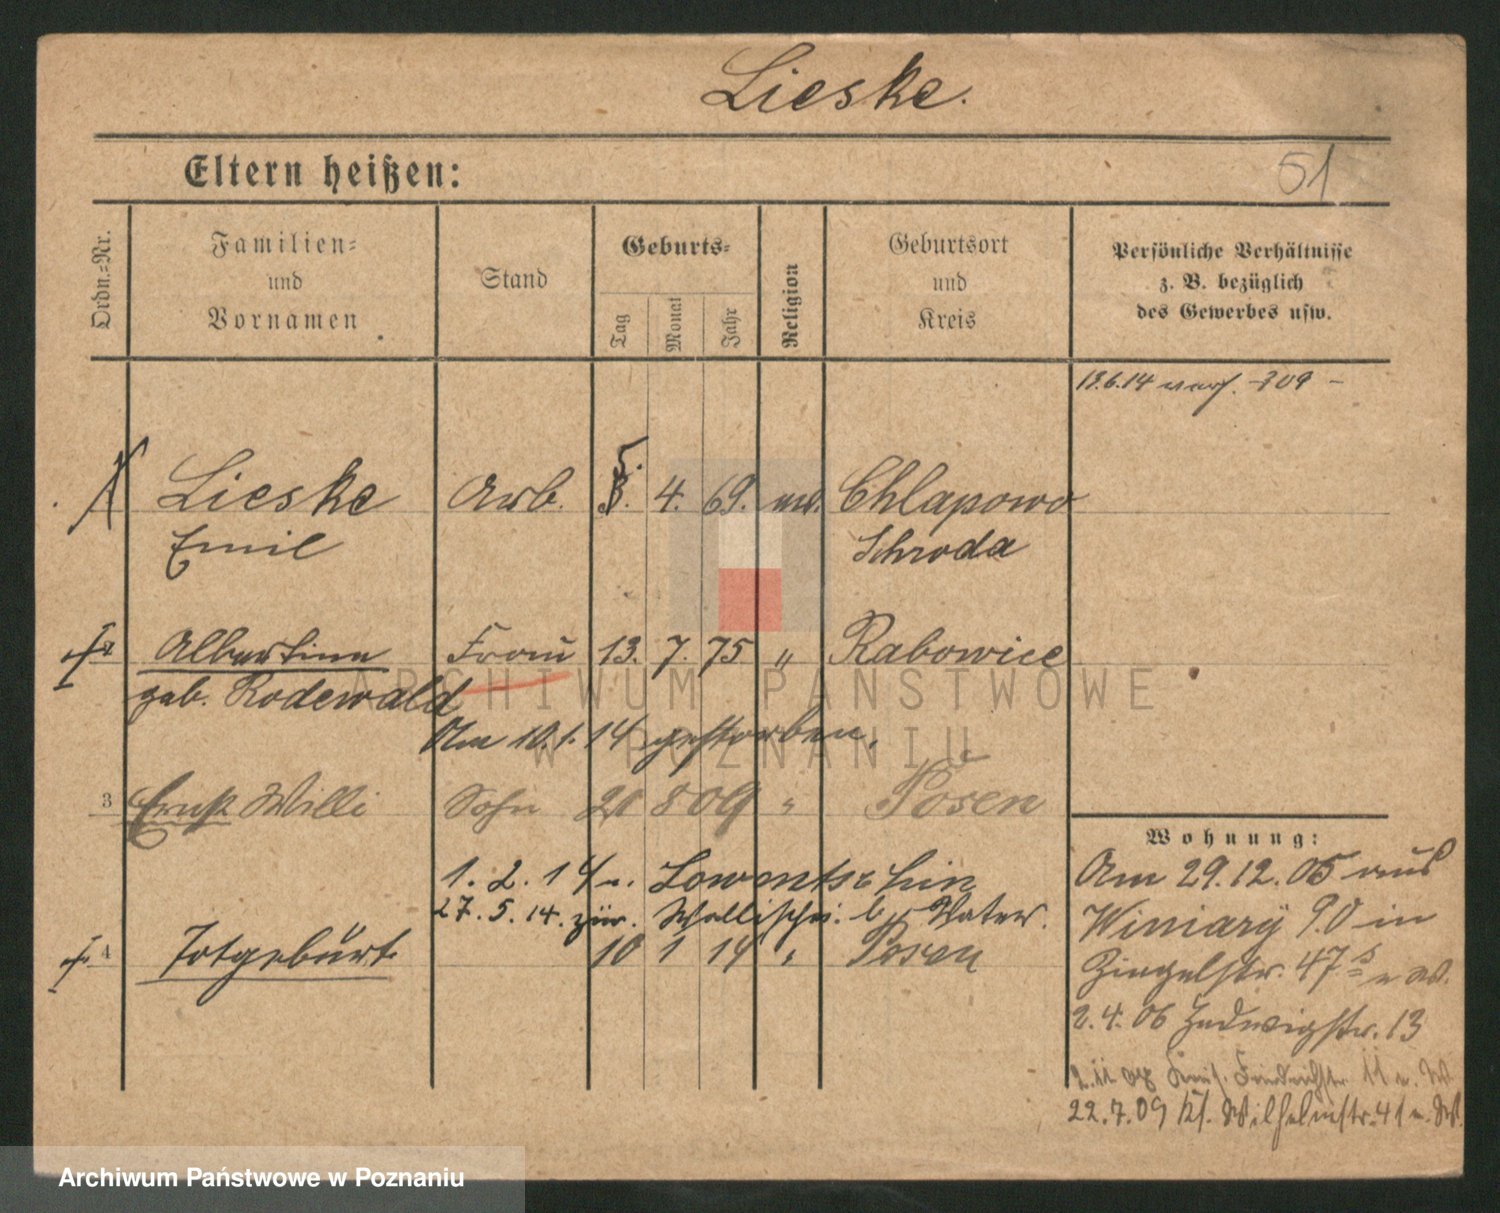 Lieske.
Eltern heißen:
51
Ordn.-Nr.
Familien-
und
Vornamen
Stand
Geburts-
Tag
Monat
Jahr
Religion
Geburtsort
und
Kreis
Persönliche Verhältnisse
z. B. bezüglich
des Gewerbes usw.
13.6.14
Lieske Arb. 5. 4. 69. Chlapowo
Emil Schroda
2 Albertine Frau 13. 7. 75 " Rabowice
geb. Rodewald
Am 10.1.14 gestorben.
3 Ernst Willi Sohn 21 8 09 " Posen
1. 2. 14 n.
27. 5. 14. zur. Wallischei b. Vater.
4 Totgeburt 10 1 14 " Posen
Wohnung:
Am 29.12.05 aus
Winiary 90 in
Ziegelstr. 47
2.4.06 Hedwigstr. 13
22.7.09 Kl. Wilhelmstr. 41 n. W.
ARCHIWUM PAŃSTWOWE
W POZNANIU
Archiwum Państwowe w Poznaniu